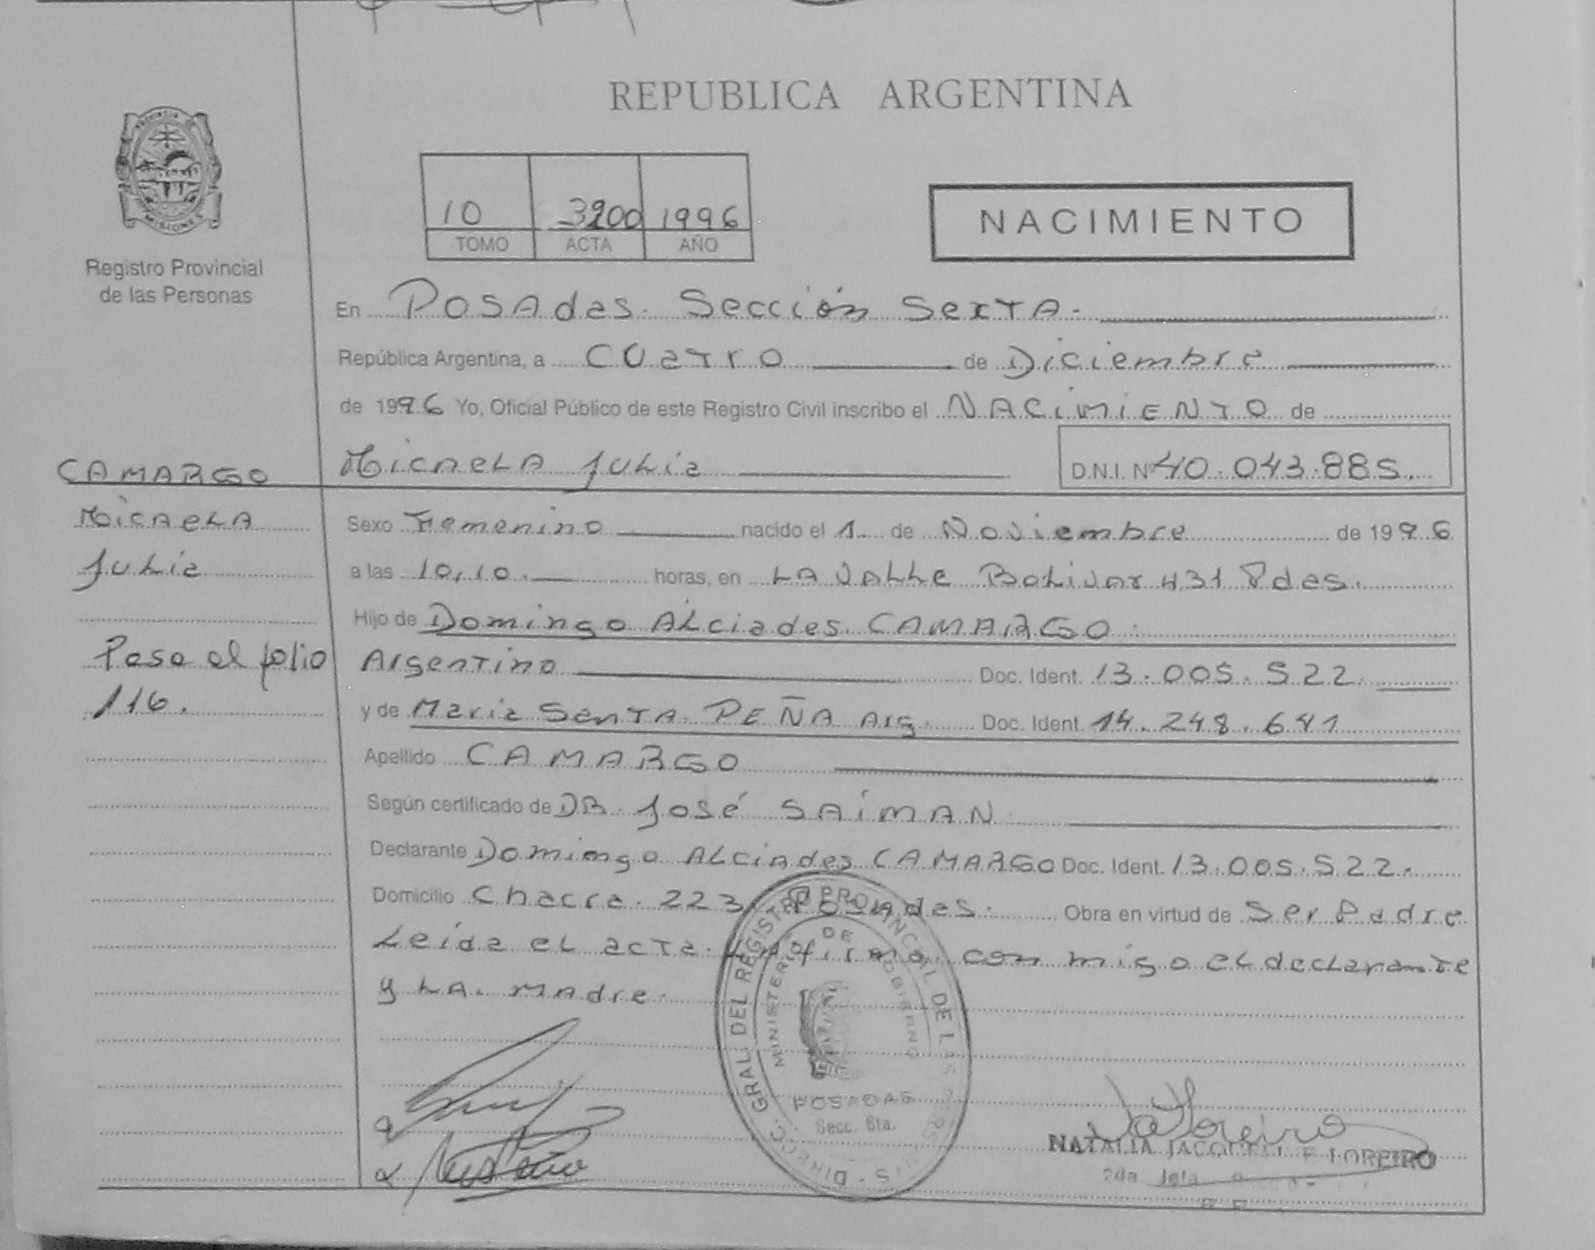 REPUBLICA ARGENTINA
PROVINCIA DE
MISIONES
Registro Provincial
de las Personas
10 3200 1996
TOMO ACTA AÑO
NACIMIENTO
En POSAdas. Sección SexTA.
República Argentina, a CUaTrO de Diciembre
de 1996 Yo, Oficial Público de este Registro Civil inscribo el NACiMiENTO de
MicaeLA JuLia D.N.I. Nº 40.043.885.
CAMARGO
MicaeLA
JuLia
Pasa al folio
116.
Sexo Femenino nacido el 1. de Noviembre de 1996
a las 10,10. horas, en LAVALLe BoLivar 431 Pdas.
Hijo de Domingo ALciades CAMARGO.
ArgenTino Doc. Ident. 13.005.522.
y de Maria SanTA PEÑA Arg. Doc. Ident. 14.248.641
Apellido CAMARGO
Según certificado de DR. José SAiMAN
Declarante Domingo ALciades CAMARGO Doc. Ident. 13.005.522.
Domicilio Chacra. 223, Posadas. Obra en virtud de Ser Padre
Leida eL acTa. La firma conmigo eL declarante
y LA. Madre.
DIRECC. GRAL. DEL REGISTRO PROVINCIAL DE LAS PERSONAS
MINISTERIO DE GOBIERNO
POSADAS
Secc. 6ta.
NATALIA JACQUELINE LOREIRO
2da Jefa